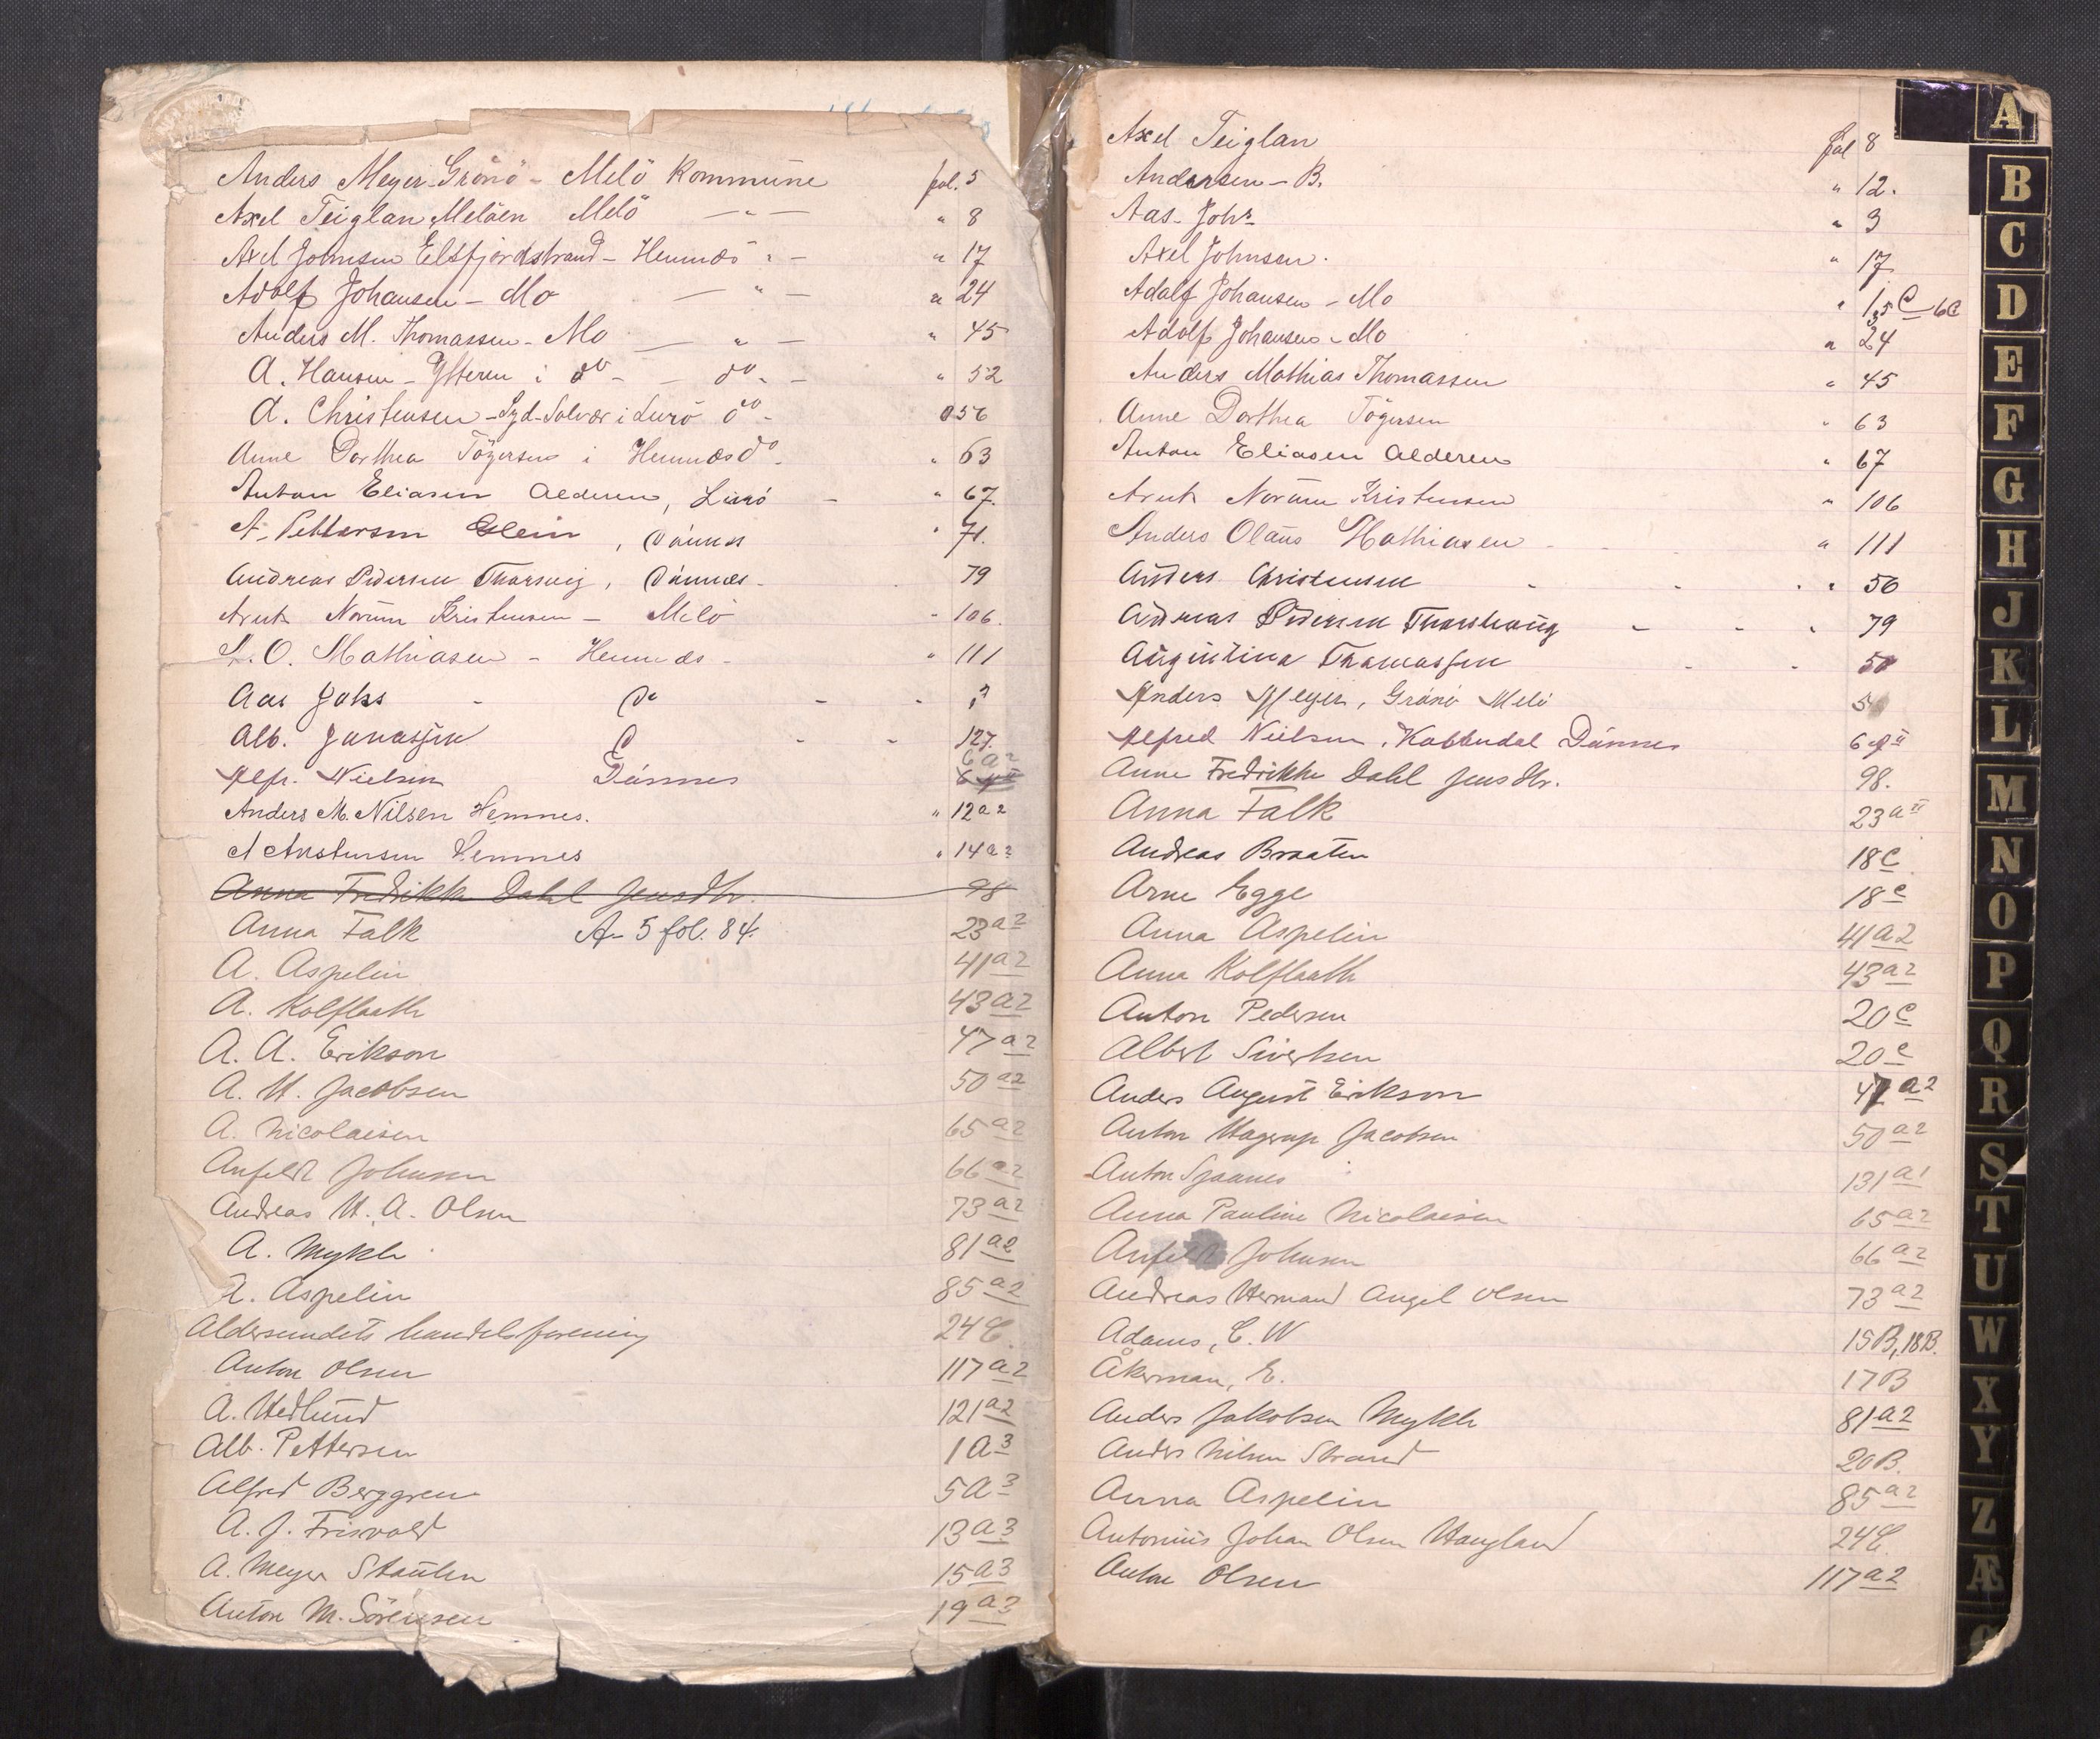 Anders Meyer-Grönö - Melö Kommune fol. 5
Axel Teiglan, Melöen Melö — " — " 8
Axel Johnsen Elsfjordstrand - Hemnæs " — " 17
Adolf Johansen - Mo — " — " 24
Anders M. Thomassen - Mo — " — " 45
A. Hansen - Ytteren i do - — do. — " 52
A. Christensen - Syd-Solvær i Lurö do - " 56
Anne Dorthea Tögersen i Hemnæs do - " 63
Anton Eliasen Alderen, Lurö - " 67.
A. Pettersen Glein, Dönnes " 71.
Andreas Pedersen Thorsvig, Dönnæs - 79
Arnt Norum Kristensen - Melö " 106.
A. O. Mathiasen - Hemnæs - " 111
Aas Johs - do - - 3
Alb. Jonassen - - 127.
Alfr. Nielsen Dönnes 6 a2
Anders M. Nilsen Hemnes. " 12 a2
A Anstensen Hemnes " 14 a2
Anna Fredrikke Dahl Jensdtr. 98
Anna Falk A- 5 fol. 84. 23 a2
A. Aspelin 41 a2
A. Kolflaath 43 a2
A. A. Erikson 47 a2
A. H. Jacobsen 50 a2
A. Nicolaisen 65 a2
Anfeldt Johnsen 66 a2
Andreas H. A. Olsen 73 a2
A. Mykle 81 a2
A. Aspelin 85 a2
Aldersundets handelsforening 24 C.
Anton Olsen 117 a2
A. Hedlund 121 a2
Alb. Pettersen 1 A3
Alfred Berggren 5 A3
A. J. Frisvold 13 a3
A. Meyer Staulen 15 a3
Anton M. Sörensen 19 a3
Axel Teiglan fol 8
Andersen - B. " 12.
Aas - Johs " 3
Axel Johnsen. " 17
Adolf Johansen - Mo " 15 C 6C
Adolf Johansen - Mo " 24
Anders Mathias Thomassen " 45
Anne Dorthea Tögersen " 63
Anton Eliasen Alderen " 67
Arnt Norum Kristensen " 106
Anders Olaus Mathiasen " 111
Anders Christensen - - " 56
Andreas Pedersen Thorshaug - - " 79
Augustina Thomassen - - 50
Anders Meyer, Grönö Melö 5
Alfred Nielsen, Kobberdal Dönnes 6
Anne Fredrikke Dahl Jensdtr. 98.
Anna Falk 23 a II
Andreas Braaten 18 C
Arne Egge 18 c
Anna Aspelin 41 a2
Anna Kolflaath 43 a2
Anton Pedersen 20 C
Albert Sivertsen 20 c
Anders August Erikson 47 a2
Anton Hagerup Jacobsen 50 a2
Anton Sjaanes 131 a1
Anna Pauline Nicolaisen 65 a2
Anfeldt Johnsen 66 a2
Andreas Herman Angel Olsen 73 a2
Adams, C. W 15 B, 18 B.
Åkerman, E. 17 B
Anders Jakobsen Mykle 81 a2
Anders Nilsen Strand 20 B.
Anna Aspelin 85 a2
Antonius Johan Olsen Haugland 24 C.
Anton Olsen 117 a2
A
B
C
D
E
F
G
H
J
K
L
M
N
O
P
Q
R
S
T
U
W
X
Y
Z
Æ